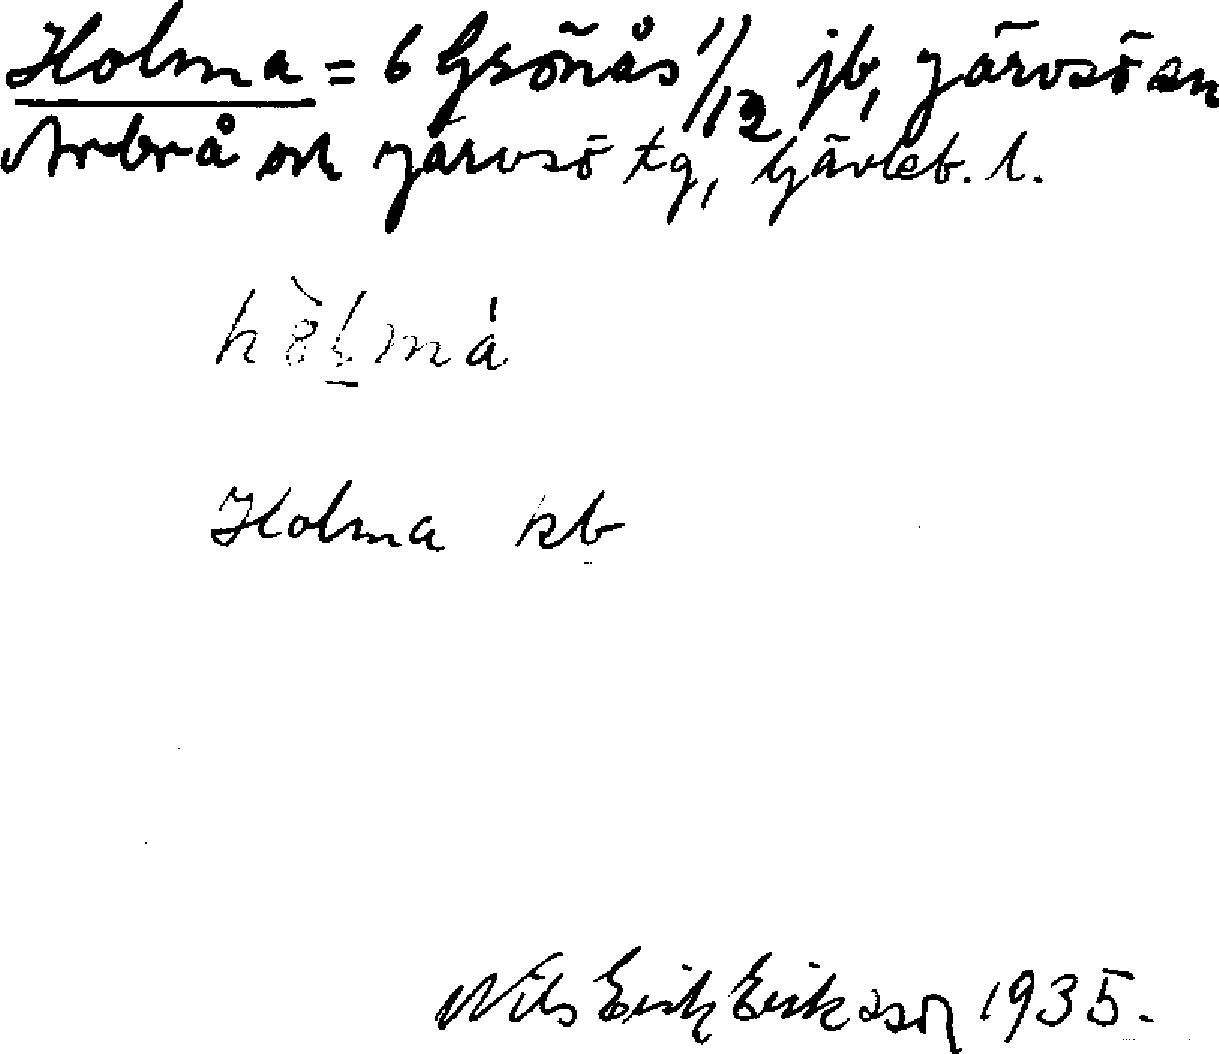 Holma = 6 Grönås 11/12 jb, Järvsö sn
Arbrå och Järvsö tg, Gävleb. l.
hòlmá
Holma kb
Nils Erik Eriksson 1935.